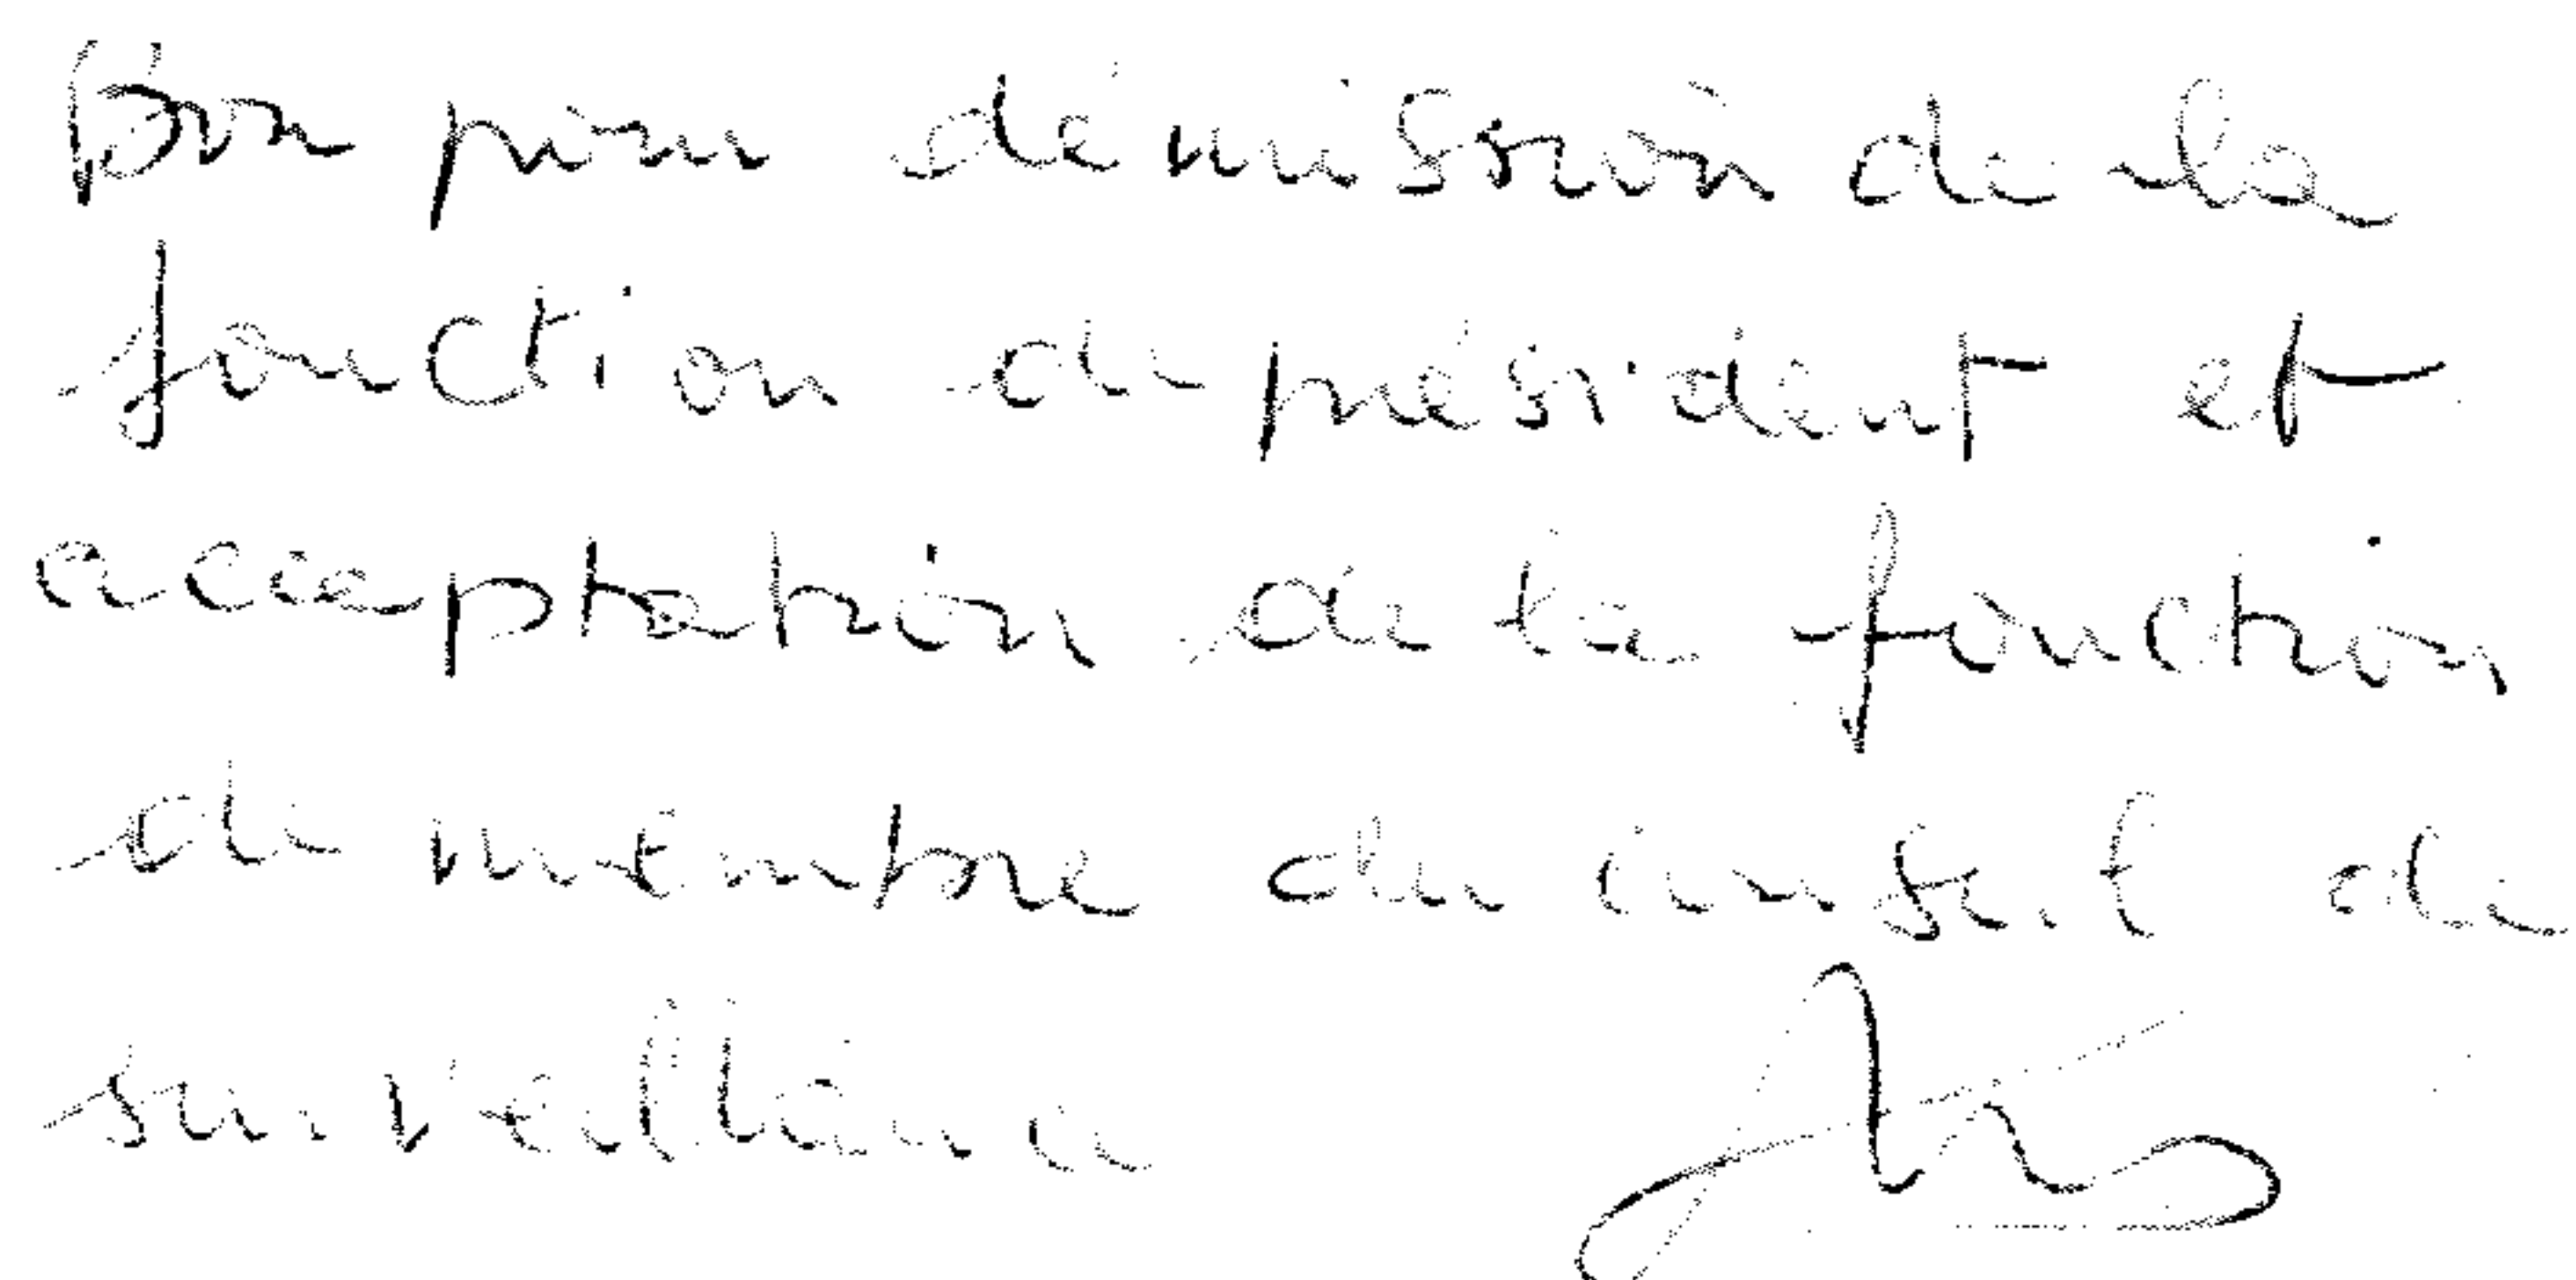 Bon pour démission de la
fonction de président et
acceptation de la fonction
de membre du conseil de
surveillance